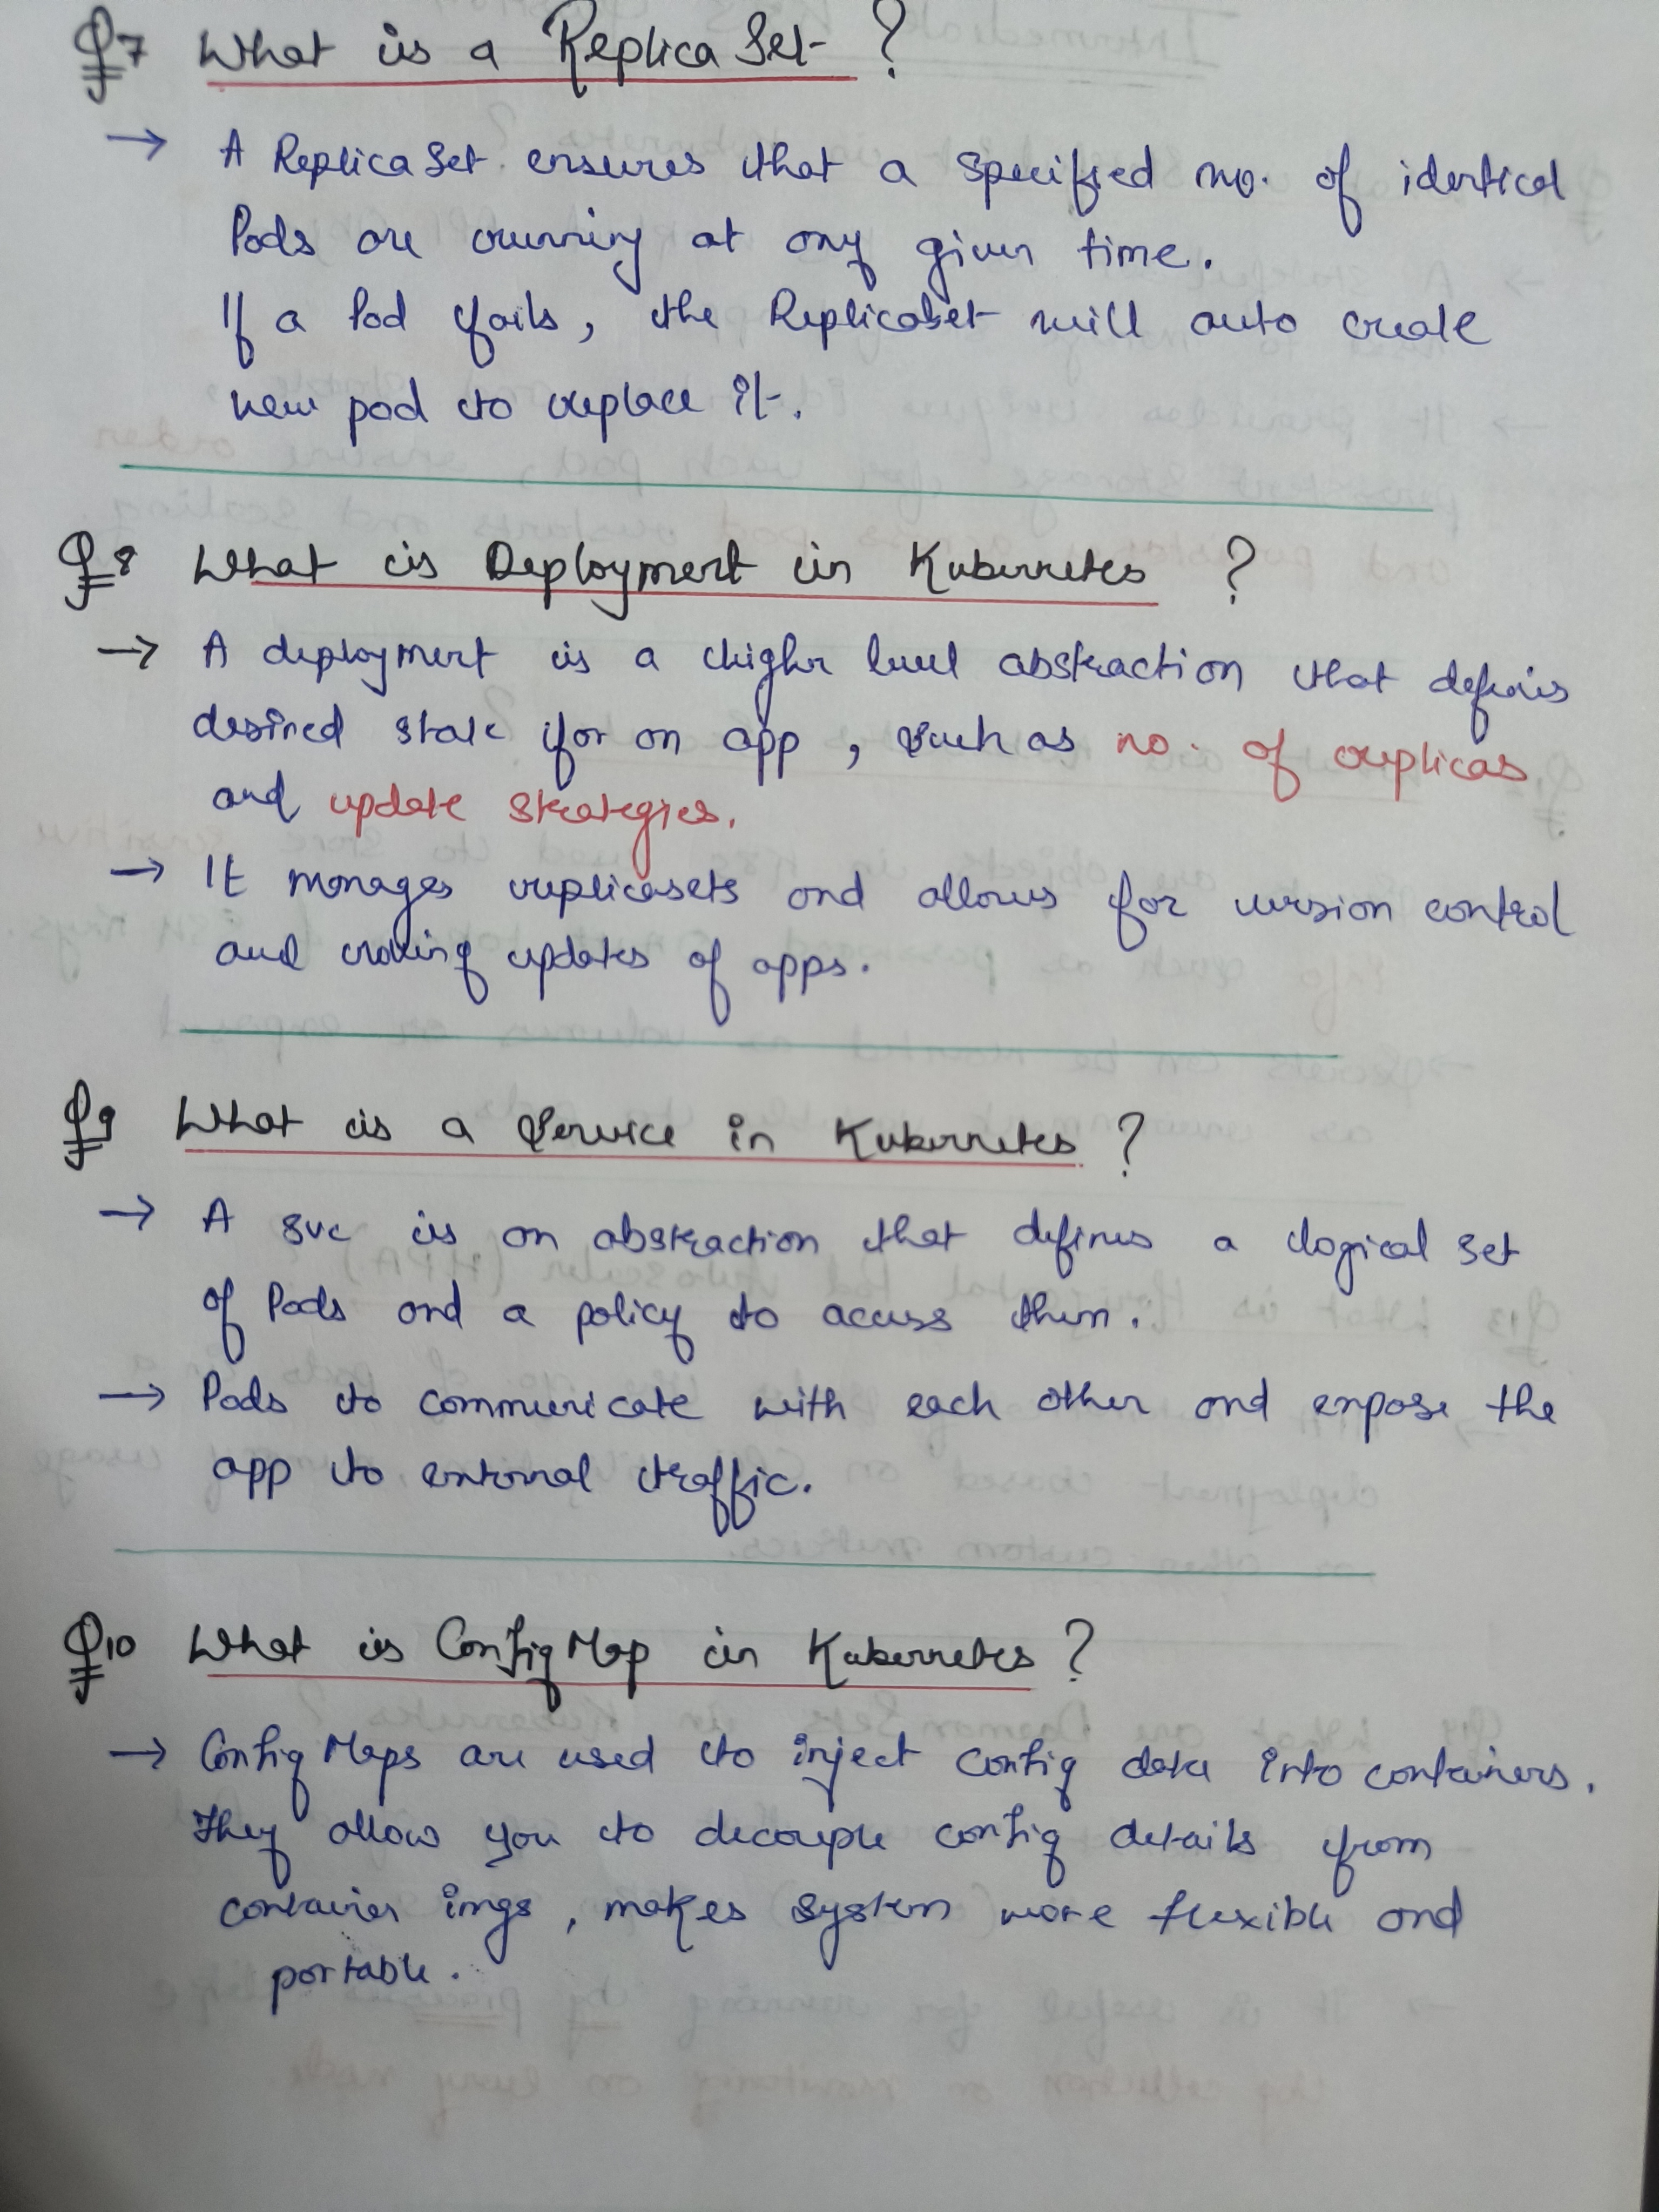 Q7 What is a Replica Set ?
→ A Replica Set ensures that a specified no. of identical
Pods are running at any given time.
If a Pod fails, the Replicaset will auto create
new pod to replace it.
Q8 What is Deployment in Kubernetes ?
→ A deployment is a higher level abstraction that defines
desired state for an app, such as no. of replicas
and update strategies.
→ It manages replicasets and allows for version control
and rolling updates of apps.
Q9 What is a Service in Kubernetes ?
→ A svc is an abstraction that defines a logical set
of Pods and a policy to access them.
→ Pods to communicate with each other and expose the
app to external traffic.
Q10 What is Config Map in Kubernetes ?
→ Config Maps are used to inject config data into containers.
They allow you to decouple config details from
container imgs, makes system more flexible and
portable.